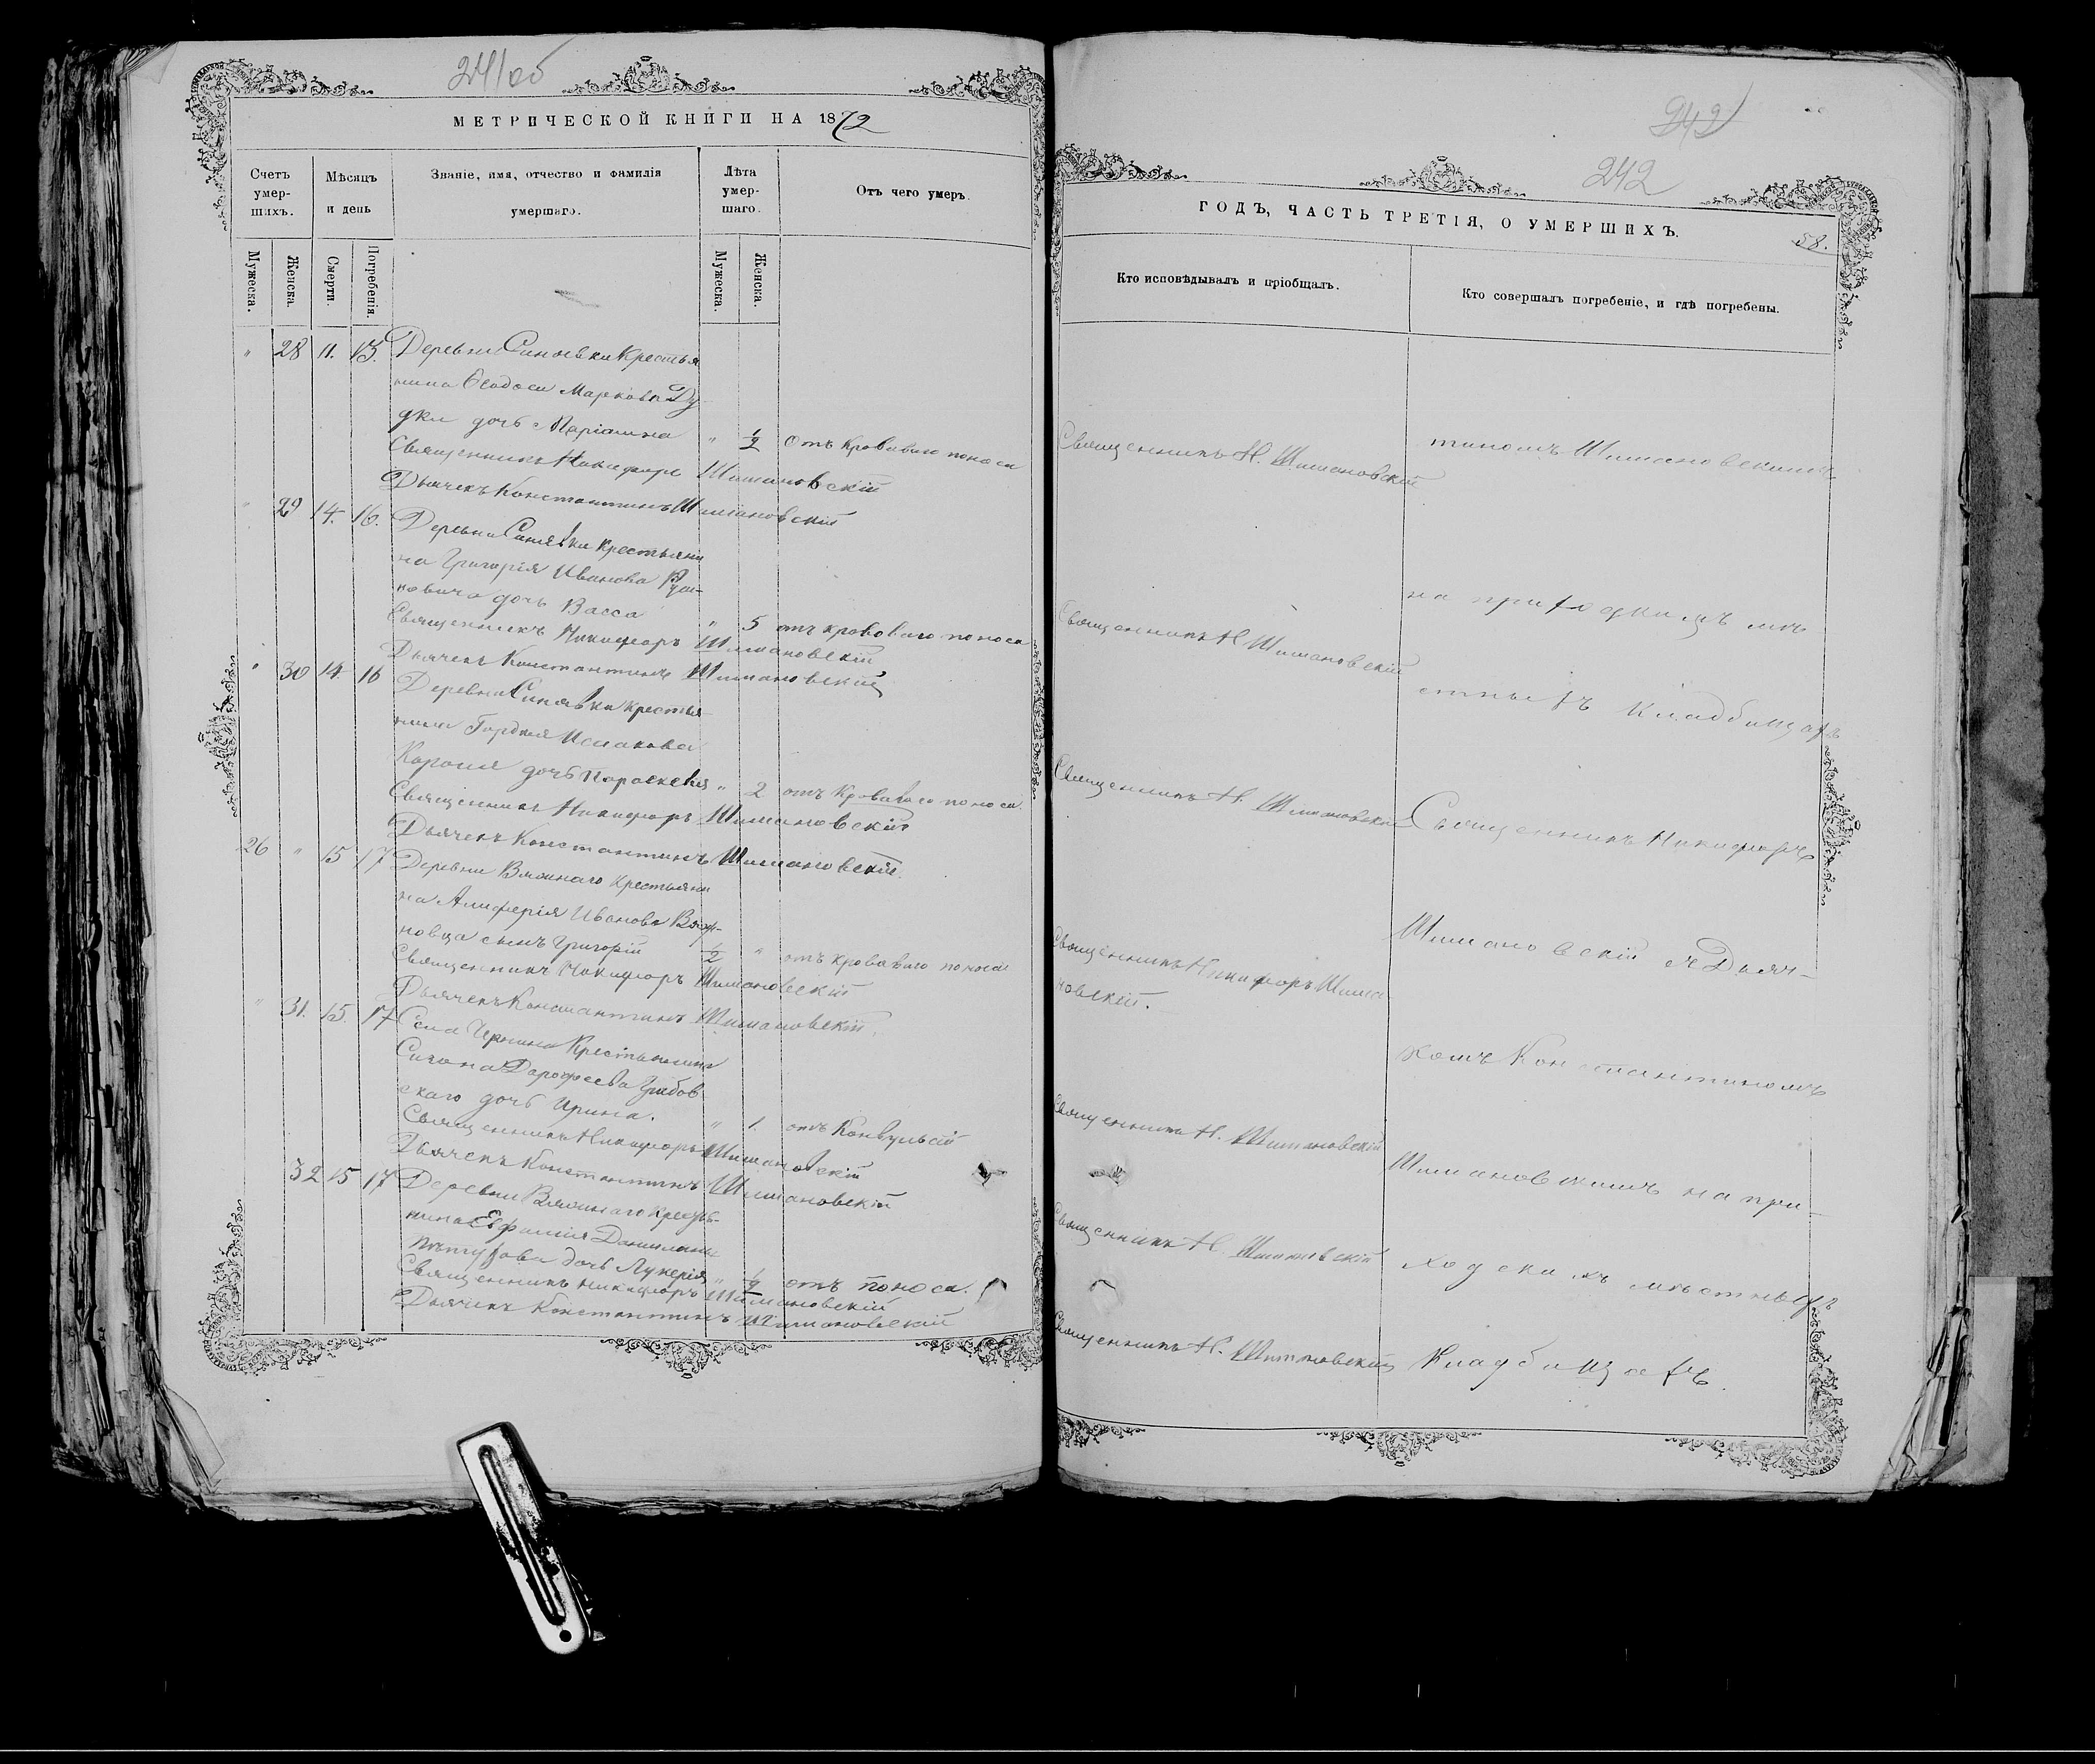 241об
МЕТРИЧЕСКОЙ КНИГИ НА 1872
Счетъ умер-шихъ.
Мѣсяцъ и день
Званіе, имя, отчество и фамилія умершаго.
Лѣта умер-шаго.
Отъ чего умеръ.
Мужеска.
Женска.
Смерти.
Погребенія.
Мужеска.
Женска.
" 28 11. 13. Деревни Синявки Крестья
нина Ѳеодосія Маркова Ду
дки дочь Маріанна " 1/2 отъ кроваваго поноса
Священникъ Никифоръ Шимановскій
Дьячекъ Константинъ Шимановскій
" 29 14. 16. Деревни Синявки крестьяни
на Григорія Иванова
новича дочь Васса " 5 отъ кроваваго поноса
Священникъ Никифоръ Шимановскій
Дьячекъ Константинъ Шимановскій
" 30 14 16 Деревни Синявки крестья
нина Гордѣя Исаакова
Короля дочь Параскевія " 2 отъ кроваваго поноса.
Священникъ Никифоръ Шимановскій
Дьячекъ Константинъ Шимановскій.
26 " 15 17 Деревни Вязоваго крестьяни
на Алиферія Иванова
новца сынъ Григорій 1/2 " отъ кроваваго поноса
Священникъ Никифоръ Шимановскій
Дьячекъ Константинъ Шимановскій.
" 31. 15. 17 Села Чернина Крестьянина
Дорофеева Грибов
скаго дочь Ирина. " 1. отъ Конвульсій
Священникъ Никифоръ Шимановскій
Дьячекъ Константинъ Шимановскій
32 15 17 Деревни Вязоваго крестья-
нина Данилова
дочь Лукерія " 1/2 отъ поноса.
Священникъ Никифоръ Шимановскій
Дьячекъ Константинъ Шимановскій
242
242
ГОДЪ, ЧАСТЬ ТРЕТІЯ, О УМЕРШИХЪ.
58.
Кто исповѣдывалъ и пріобщалъ.
Кто совершалъ погребеніе, и гдѣ погребены.
Священникъ Н. Шимановскій
Священникъ Н. Шимановскій
Священникъ Н. Шимановскій
Священникъ Никифоръ Шима
новскій.
Священникъ Н. Шимановскій
Священникъ Н. Шимановскій
Священникъ Н. Шимановскій
тиномъ Шимановскимъ
на приходскихъ мѣ
стныхъ Кладбищахъ
Священникъ Никифоръ
Шимановскій съ Дьяч-
комъ Константиномъ
Шимановскимъ на при-
ходскихъ мѣстныхъ
Кладбищахъ.